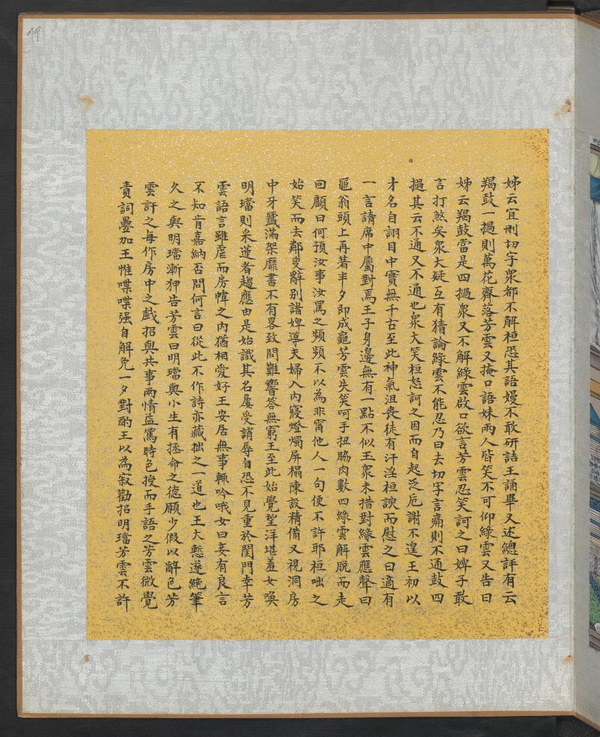 姊云宜刑切字衆都不解桓恐其語嫚不敢研詰王誦畢又述總評有云
羯鼓一撾則萬花齊落芳雲又掩口語妹兩人皆笑不可仰綠雲又告曰
姊云羯鼓當是四撾衆又不解綠雲啟口欲言芳雲忍笑訶之曰婢子敢
言打煞矣衆大疑互有猜論綠雲不能忍乃曰去切字言痛則不通鼓四
撾其云不通又不通也衆大笑桓怒訶之因而自起泛卮謝不遑王初以
才名自詡目中實無千古至此神氣沮喪徒有汗淫桓諛而慰之曰適有
一言請席中屬對焉王子身邊無有一點不似王衆未措對綠雲應聲曰
黽翁頭上再著半夕即成龜芳雲失笑呵手扭脇肉數四綠雲解脫而走
回顧曰何預汝事汝罵之頻頻不以為非甯他人一句便不許耶桓咄之
始笑而去鄰叟辭别諸婢導夫婦入內寢燈燭屏榻陳設精備又視洞房
中牙籤滿架靡書不有畧致問難響答無窮王至此始覺望洋堪羞女喚
明璫則采蓮者趨應由是始識其名屢受誚辱自恐不見重於閨門幸芳
雲語言雖虐而房幃之內猶相愛好王安居無事輒吟哦女曰妾有良言
不知肯嘉納否問何言曰從此不作詩亦藏拙之一道也王大慙遂絶筆
久之與明璫漸狎告芳雲曰明璫與小生有拯命之德願少假以辭色芳
雲許之每作房中之戲招與共事兩情益篤時色授而手語之芳雲微覺
責詞疊加王惟喋喋强自解免一夕對酌王以為寂勸招明璫芳雲不許